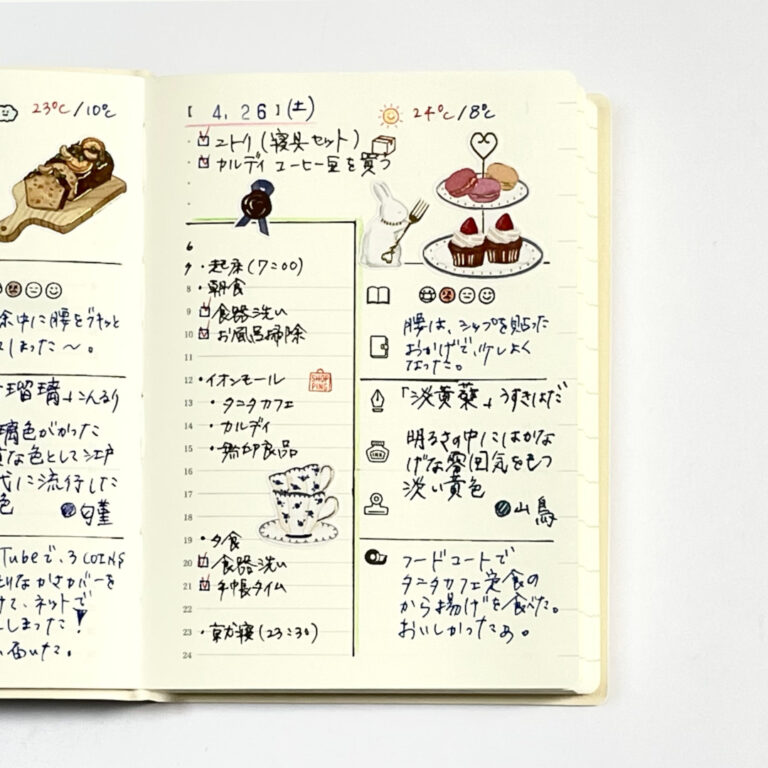 23℃/10℃
余中に腰をギキッと
しまった〜。
瑠璃」こんるり
璃色がかった
な色として江戸
代に流行した
色
白菫
Tubeで、3COINS
なかさカバーを
けて、ネットで
しまった!
届いた。
[ 4, 26 ](土)
24℃/8℃
ニトリ(寝具セット)
カルディ コーヒー豆を買う
6
7 ・起床(7:00)
8 ・朝食
9 食器洗い
10 お風呂掃除
11
12 ・イオンモール
SHOPPING
13 ・タニタカフェ
14 ・カルディ
15 ・無印良品
16
17
18
19 ・夕食
20 食器洗い
21 手帳タイム
22
23 ・就寝(23:30)
24
腰は、シップを貼った
おかげで、少しよく
なった。
「淡黄蘗」うすきはだ
明るさの中にはかな
げな雰囲気をもつ
淡い黄色
INK
山鳥
フードコートで
タニタカフェ定食の
から揚げを食べた。
おいしかったぁ。